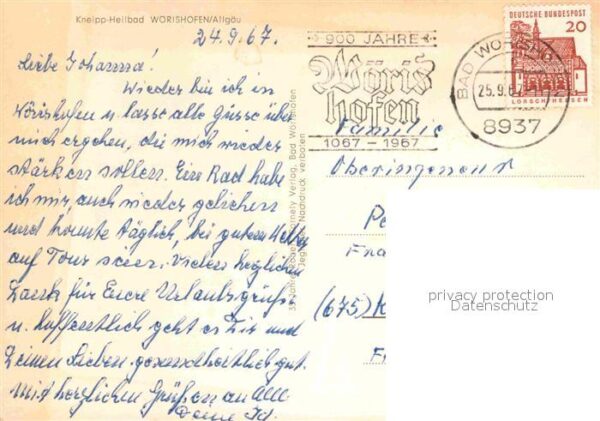 Kneipp-Heilbad WÖRISHOFEN/Allgäu
24.9.67.
Liebe Johanna!
Wieder bin ich in
Wörishofen u. lasse alle Güsse über
mich ergehen, die mich wieder
stärken sollen. Ein Rad habe
ich mir auch wieder geliehen
und konnte täglich, bei gutem Wetter
auf Tour sein. Vielen herzlichen
Dank für Eure Urlaubsgrüße
u. hoffentlich geht es Dir und
Deinen Lieben gesundheitlich gut.
Mit herzlichen Grüßen an Alle
Deine
Verlag, Bad Wörishofen
Nachdruck verboten
900 JAHRE
Wöris
hofen
1067 - 1967
BAD WÖRISHO
25.9.67
8937
DEUTSCHE BUNDESPOST
20
LORSCH/HESSEN
Familie
Oberingenieur
(675) K
privacy protection
Datenschutz